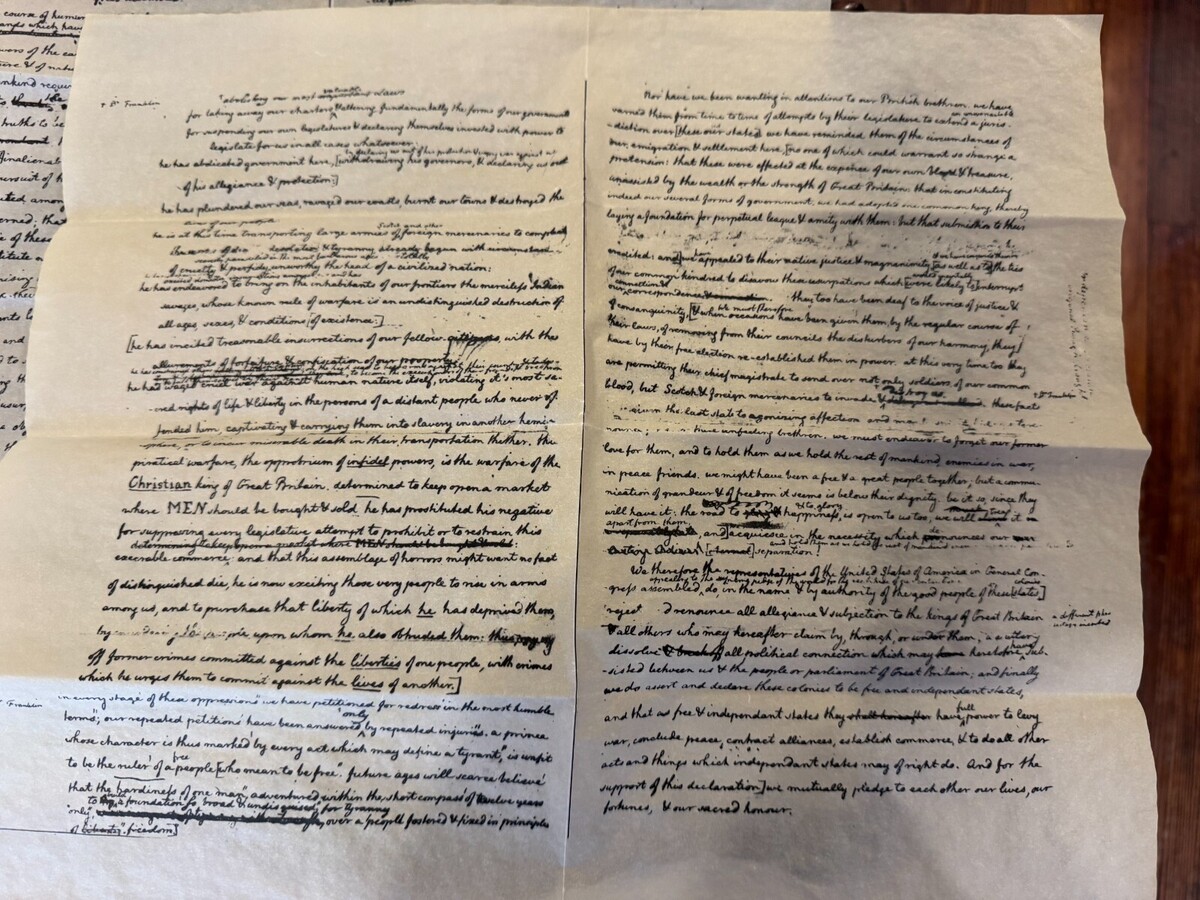 course of human
bands which have
powers of the ea
mankind requi
truths to be
inalienable
pursuit of h
ted among
erned; that
of these
stitute
+ Dr Franklin
abolishing our most valuable Laws
for taking away our charters & altering fundamentally the forms of our governments
for suspending our own legislatures & declaring themselves invested with power to
legislate for us in all cases whatsoever:
by declaring us out of his protection & waging war against us
he has abdicated government here, [withdrawing his governors, & declaring us out
of his allegiance & protection:]
he has plundered our seas, ravaged our coasts, burnt our towns & destroyed the
lives of our people:
Scotch and other
he is at this time transporting large armies of foreign mercenaries to compleat
the works of death desolation & tyranny already begun with circumstances
of cruelty & perfidy unworthy the head of a civilized nation:
he has endeavored to bring on the inhabitants of our frontiers the merciless Indian
savages, whose known rule of warfare is an undistinguished destruction of
all ages, sexes, & conditions [of existence:]
[he has incited treasonable insurrections of our fellow-citizens, with the
allurements of forfeiture & confiscation of our property:
he has waged cruel war against human nature itself, violating it's most sa-
-cred rights of life & liberty in the persons of a distant people who never of-
fended him, captivating & carrying them into slavery in another hemi-
-sphere, or to incur miserable death in their transportation thither. this
piratical warfare, the opprobrium of infidel powers, is the warfare of the
Christian king of Great Britain. determined to keep open a market
where MEN should be bought & sold he has prostituted his negative
for suppressing every legislative attempt to prohibit or to restrain this
determining to keep open a market where MEN should be bought & sold:
execrable commerce: and that this assemblage of horrors might want no fact
of distinguished die, he is now exciting those very people to rise in arms
among us, and to purchase that liberty of which he has deprived them,
by upon whom he also obtruded them: thus paying
off former crimes committed against the liberties of one people, with crimes
which he urges them to commit against the lives of another.]
Franklin
in every stage of these oppressions we have petitioned for redress in the most humble
only
terms; our repeated petitions have been answered by repeated injuries. a prince
whose character is thus marked by every act which may define a tyrant, is unfit
free
to be the ruler of a people [who mean to be free. future ages will scarce believe
that the hardiness of one man, adventured within the short compass of twelve years
only, to a foundation so broad & undisguised, for tyranny
over a people fostered & fixed in principles
of liberty. freedom]
Nor have we been wanting in attentions to our British brethren. we have
an unwarrantable
warned them from time to time of attempts by their legislature to extend a juris-
-diction over [these our states] we have reminded them of the circumstances of
our emigration & settlement here, [no one of which could warrant so strange a
pretension: that these were effected at the expence of our own blood & treasure,
unassisted by the wealth or the strength of Great Britain: that in constituting
indeed our several forms of government, we had adopted one common king, thereby
laying a foundation for perpetual league & amity with them: but that submission to their
credited: and] we appealed to their native justice & magnanimity, [as well as to] the ties
of our common kindred to disavow these usurpations which [were likely to] interrupt
connection &
our correspondence & connection. they too have been deaf to the voice of justice &
we must therefore
of consanguinity, [& when occasions have been given them, by the regular course of
their laws, of removing from their councils the disturbers of our harmony, they
have by their free election re-established them in power. at this very time too they
are permitting their chief magistrate to send over not only soldiers of our common
blood, but Scotch & foreign mercenaries to invade & destroy us. these facts
Dr Franklin
given the last stab to agonizing affection and
unfeeling brethren. we must endeavor to forget our former
love for them, and to hold them as we hold the rest of mankind, enemies in war,
in peace friends. we might have been a free & a great people together; but a commu-
-nication of grandeur & of freedom it seems is below their dignity. be it so, since they
& to glory
will have it: the road to happiness, is open to us too; we will it
apart from them,
and] acquiesce in the necessity which denounces our
[eternal] separation!
We therefore the representatives of the United States of America in General Con-
appealing to the supreme judge of the world for the rectitude of our intentions
colonies
-gress assembled, do, in the name & by authority of the good people of these [states]
reject renounce all allegiance & subjection to the kings of Great Britain
& all others who may hereafter claim by, through, or under them; we utterly
have
dissolve & break off all political connection which may have heretofore sub-
-sisted between us & the people or parliament of Great Britain; and finally
we do assert and declare these colonies to be free and independant states,
full
and that as free & independant states they shall hereafter have power to levy
war, conclude peace, contract alliances, establish commerce, & to do all other
acts and things which independant states may of right do. And for the
support of this declaration] we mutually pledge to each other our lives, our
fortunes, & our sacred honour.